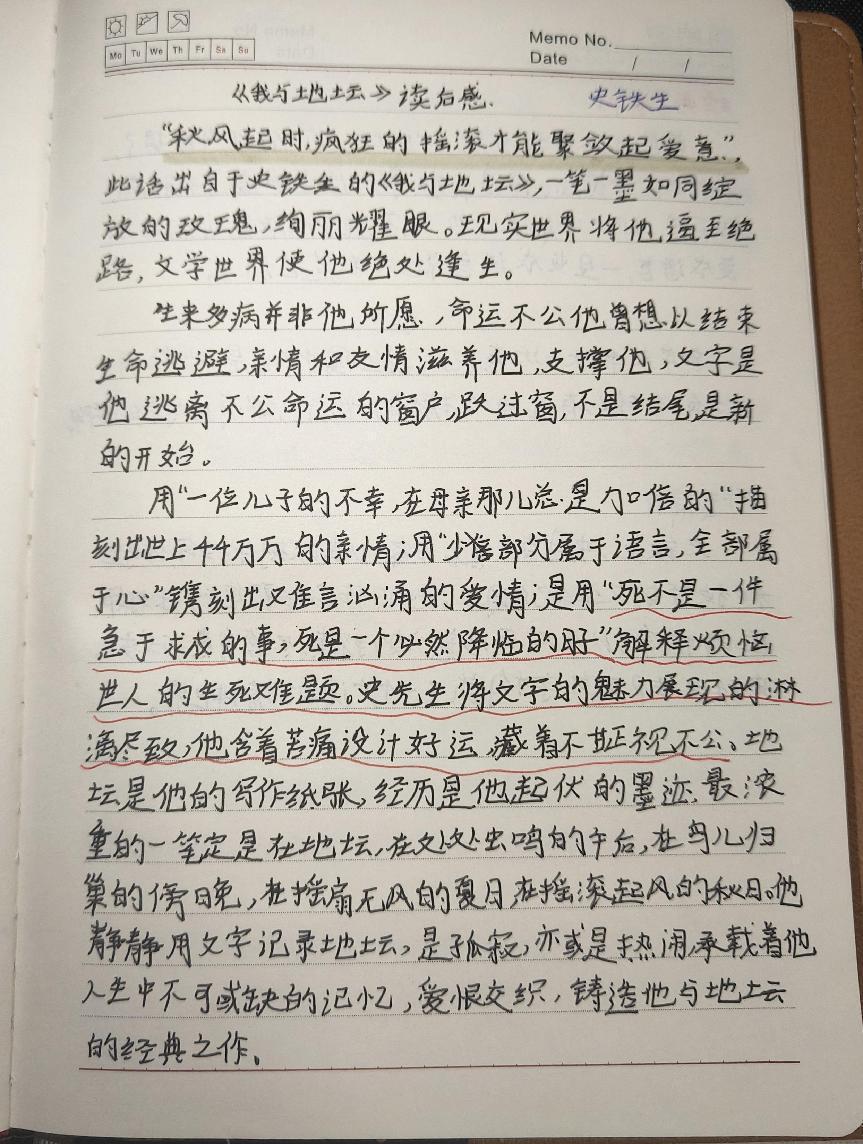 Mo Tu We Th Fr Sa Su
Memo No.
Date / /
《我与地坛》读后感. 史铁生
“秋风起时,疯狂的摇滚才能聚敛起爱意”,
此话出自于史铁生的《我与地坛》,一笔一墨如同绽
放的玫瑰,绚丽耀眼。现实世界将他逼至绝
路,文学世界使他绝处逢生。
生来多病并非他所愿,命运不公他曾想以结束
生命逃避,亲情和友情滋养他,支撑他,文字是
他逃离不公命运的窗户,跃过窗,不是结尾,是新
的开始。
用“一位儿子的不幸,在母亲那儿总是加倍的“描
刻出世上千千万万的亲情;用“少部分属于语言,全部属
于心”镌刻出难言汹涌的爱情;是用“死不是一件
急于求成的事,死是一个必然降临的日子”解释烦恼
世人的生死难题。史先生将文字的魅力展现的淋
漓尽致,他含着苦痛设计好运,藏着不甘正视不公。地
坛是他的写作纸张,经历是他起伏的墨迹,最浓
重的一笔定是在地坛,在处处虫鸣的午后,在鸟儿归
巢的傍晚,在摇扇无风的夏日,在摇滚起风的秋日。他
静静用文字记录地坛,是孤寂,亦或是热闹,承载着他
人生中不可或缺的记忆,爱恨交织,铸造他与地坛
的经典之作。